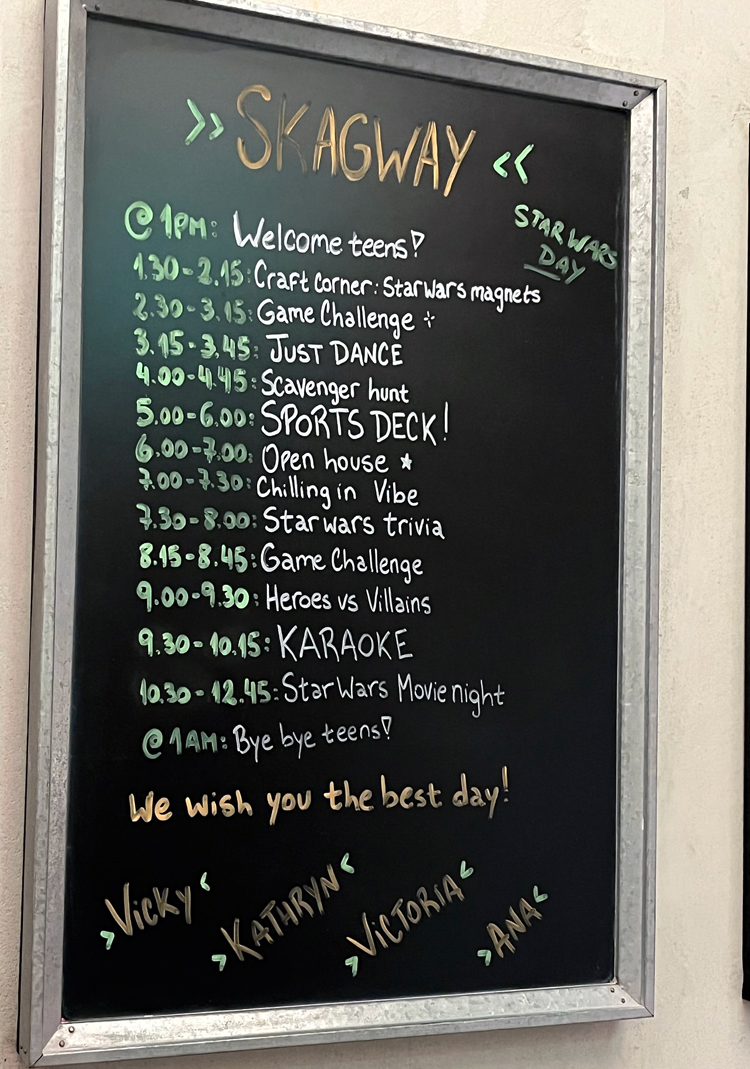 >> SKAGWAY <<
STAR WARS
DAY
@ 1PM: Welcome teens!
1.30-2.15: Craft Corner: Star wars magnets
2.30-3.15: Game Challenge
3.15-3.45: JUST DANCE
4.00-4.45: Scavenger hunt
5.00-6.00: SPORTS DECK!
6.00-7.00: Open house ★
7.00-7.30: Chilling in Vibe
7.30-8.00: Star wars trivia
8.15-8.45: Game Challenge
9.00-9.30: Heroes vs Villains
9.30-10.15: KARAOKE
10.30-12.45: Star Wars Movie night
@ 1AM: Bye bye teens!
We wish you the best day!
> VICKY <
> KATHRYN <
> VICTORIA <
> ANA <